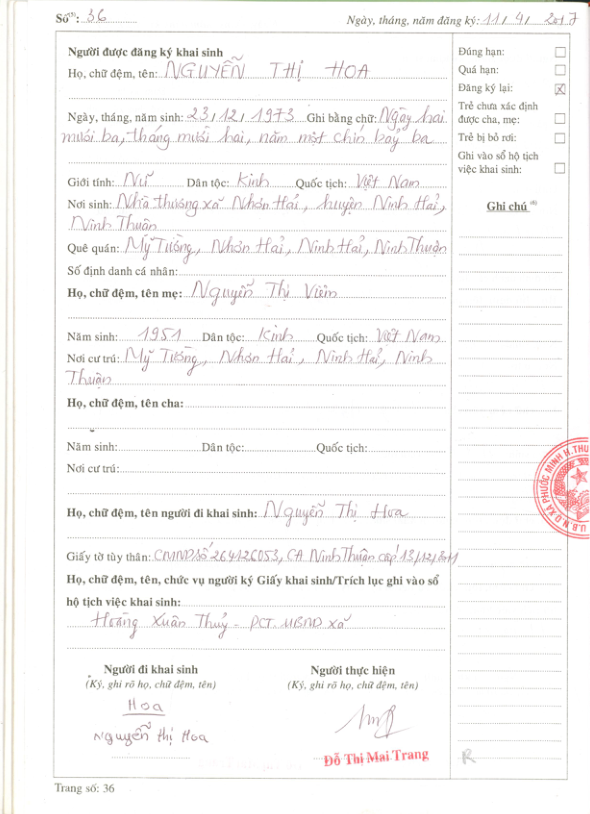 Số⁽⁵⁾: 36 Ngày, tháng, năm đăng ký: 11/4/2017
Người được đăng ký khai sinh
Họ, chữ đệm, tên: NGUYỄN THỊ HOA
Ngày, tháng, năm sinh: 23/12/1973 Ghi bằng chữ: Ngày hai
mươi ba, tháng mười hai, năm một chín bảy ba
Giới tính: Nữ Dân tộc: Kinh Quốc tịch: Việt Nam
Nơi sinh: Nhà thương xã Nhơn Hải, huyện Ninh Hải,
Ninh Thuận
Quê quán: Mỹ Tường, Nhơn Hải, Ninh Hải, Ninh Thuận
Số định danh cá nhân:
Họ, chữ đệm, tên mẹ: Nguyễn Thị Viêm
Năm sinh: 1951 Dân tộc: Kinh Quốc tịch: Việt Nam
Nơi cư trú: Mỹ Tường, Nhơn Hải, Ninh Hải, Ninh
Thuận
Họ, chữ đệm, tên cha:
Năm sinh: Dân tộc: Quốc tịch:
Nơi cư trú:
Họ, chữ đệm, tên người đi khai sinh: Nguyễn Thị Hoa
Giấy tờ tùy thân: CMND số 264126053, CA Ninh Thuận cấp 13/12/2011
Họ, chữ đệm, tên, chức vụ người ký Giấy khai sinh/Trích lục ghi vào sổ
hộ tịch việc khai sinh:
Hoàng Xuân Thuỷ - PCT. UBND xã
Người đi khai sinh
(Ký, ghi rõ họ, chữ đệm, tên)
Hoa
Nguyễn Thị Hoa
Người thực hiện
(Ký, ghi rõ họ, chữ đệm, tên)
Đỗ Thị Mai Trang
Đúng hạn:
Quá hạn:
Đăng ký lại: X
Trẻ chưa xác định
được cha, mẹ:
Trẻ bị bỏ rơi:
Ghi vào sổ hộ tịch
việc khai sinh:
Ghi chú ⁽⁶⁾
U.B.N.D XÃ PHƯỚC MINH H.THU
R
Trang số: 36